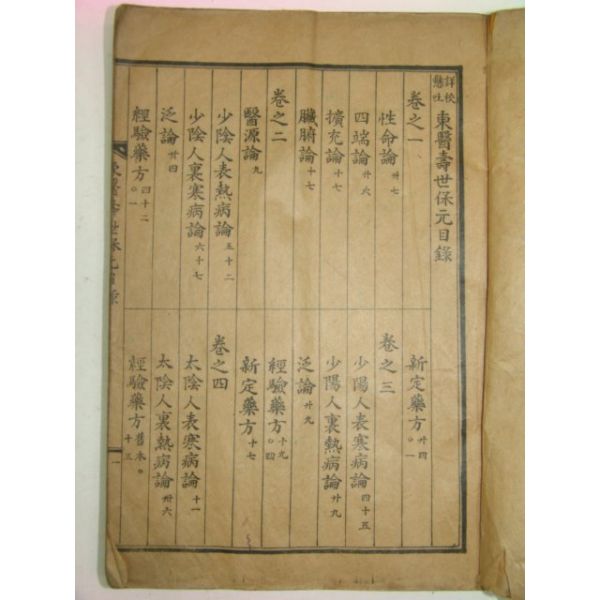 詳校懸吐 東醫壽世保元目錄
卷之一
性命論 卅
四端論 卄六
擴充論 十七
臟腑論 十七
卷之二
醫源論 九
少陰人表熱病論 五十二
少陰人裏寒病論 六十七
泛論 卄四
經驗藥方 四十二 〇一
新定藥方 卄四 〇一
卷之三
少陽人表寒病論 四十五
少陽人裏熱病論 卄九
泛論 卄九
經驗藥方 十九 〇四
新定藥方 十七
卷之四
太陰人表寒病論 十一
太陰人裏熱病論 卅六
經驗藥方 舊本〇十三
東醫壽世保元目錄 一